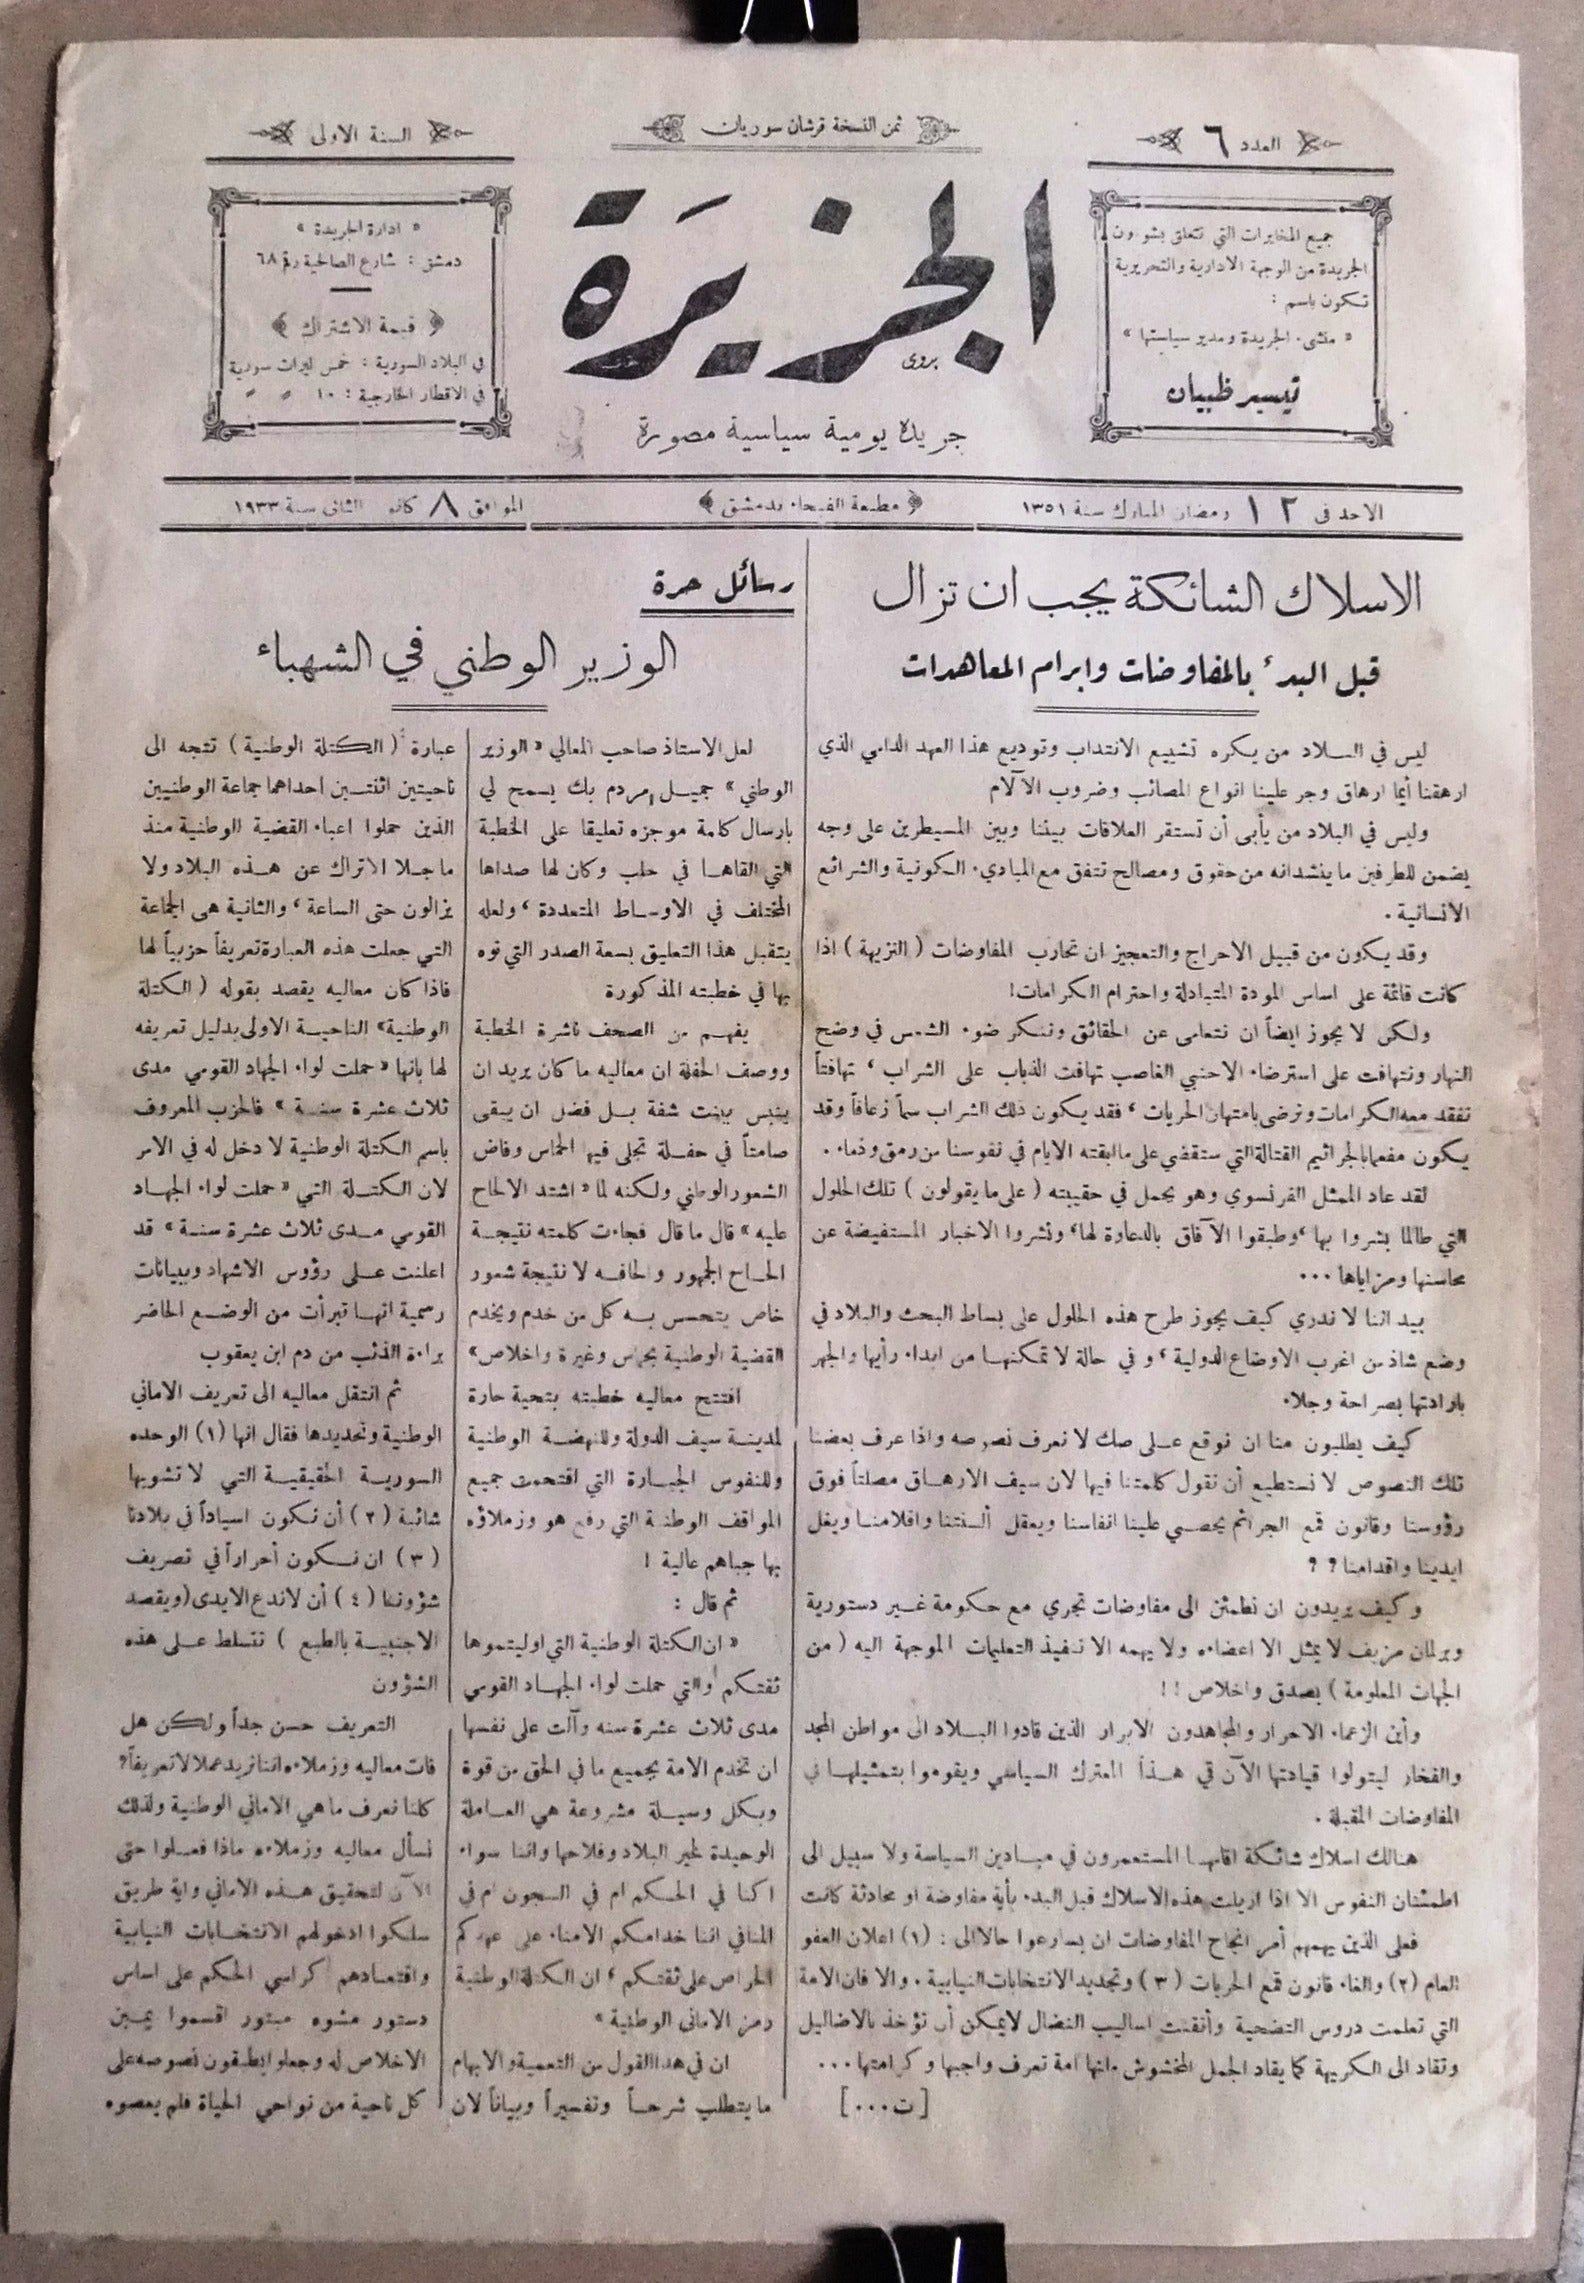 العدد ٦
ثمن النسخة قرشان سوريان
السنة الاولى
جميع المخابرات التي تتعلق بشؤون
الجريدة من الوجهة الادارية والتحريرية
تكون باسم :
« منشىء الجريدة ومدير سياستها »
تيسير ظبيان
الجزيرة
بروى
جريدة يومية سياسية مصورة
« ادارة الجريدة »
دمشق : شارع الصالحية رقم ٦٨
﴿ قيمة الاشتراك ﴾
في البلاد السورية : خمس ليرات سورية
في الاقطار الخارجية : ١٠ » »
الاحد في ١٢ رمضان المبارك سنة ١٣٥١
﴿ مطبعة الفيحاء بدمشق ﴾
الموافق ٨ كانو الثاني سنة ١٩٣٣
الاسلاك الشائكة يجب ان تزال
قبل البدء بالمفاوضات وابرام المعاهدات
ليس في البلاد من يكره تشييع الانتداب وتوديع هذا العهد الدامي الذي
ارهقنا أيما ارهاق وجر علينا انواع المصائب وضروب الآلام
وليس في البلاد من يأبى أن تستقر العلاقات بيننا وبين المسيطرين على وجه
يضمن للطرفين ما ينشدانه من حقوق ومصالح تتفق مع المبادىء الكونية والشرائع
الانسانية .
وقد يكون من قبيل الاحراج والتعجيز ان تحارب المفاوضات ( النزيهة ) اذا
كانت قائمة على اساس المودة المتبادلة واحترام الكرامات !
ولكن لا يجوز ايضاً ان نتعامى عن الحقائق وننكر ضوء الشمس في وضح
النهار ونتهافت على استرضاء الاجنبي الغاصب تهافت الذباب على الشراب ، تهافتاً
نفقد معه الكرامات ونرضى بامتهان الحريات ، فقد يكون ذلك الشراب سماً زعافاً وقد
يكون مفعما بالجراثيم القتالة التي ستقضي على ما ابقته الايام في نفوسنا من رمق وذماء .
لقد عاد الممثل الفرنسوي وهو يحمل في حقيبته ( على ما يقولون ) تلك الحلول
التي طالما بشروا بها ، وطبقوا الآفاق بالدعاوة لها ، ونشروا الاخبار المستفيضة عن
محاسنها ومزاياها ...
بيد اننا لا ندري كيف يجوز طرح هذه الحلول على بساط البحث والبلاد في
وضع شاذ من اغرب الاوضاع الدولية ، وفي حالة لا تمكنها من ابداء رأيها والجهر
بارادتها بصراحة وجلاء
كيف يطلبون منا ان نوقع على صك لا نعرف نصوصه واذا عرف بعضنا
تلك النصوص لا نستطيع أن نقول كلمتنا فيها لان سيف الارهاق مصلتاً فوق
رؤوسنا وقانون قمع الجرائم يحصي علينا انفاسنا ويعقل ألسنتنا واقلامنا ويغل
ايدينا واقدامنا ؟ ؟
وكيف يريدون ان نطمئن الى مفاوضات تجري مع حكومة غير دستورية
وبرلمان مزيف لا يمثل الا اعضاءه ولا يهمه الا تنفيذ التعليمات الموجهة اليه ( من
الجهات المعلومة ) بصدق واخلاص ! !
وأين الزعماء الاحرار والمجاهدون الابرار الذين قادوا البلاد الى مواطن المجد
والفخار ليتولوا قيادتها الآن في هذا المعترك السياسي ويقوموا بتمثيلها في
المفاوضات المقبلة .
هنالك اسلاك شائكة اقامها المستعمرون في ميادين السياسة ولا سبيل الى
اطمئنان النفوس الا اذا ازيلت هذه الاسلاك قبل البدء بأية مفاوضة او محادثة كانت
فعلى الذين يهمهم أمر انجاح المفاوضات ان يسارعوا حالا الى : (١) اعلان العفو
العام (٢) والغاء قانون قمع الحريات ( ٣ ) وتجديد الانتخابات النيابية . والا فان الامة
التي تعلمت دروس التضحية وأتقنت اساليب النضال لا يمكن أن تؤخذ بالاضاليل
وتقاد الى الكريهة كما يقاد الجمل المخشوش ، انها امة تعرف واجبها وكرامتها ...
[ ت ... ]
رسائل حرة
الوزير الوطني في الشهباء
لعل الاستاذ صاحب المعالي « الوزير
الوطني » جميل مردم بك يسمح لي
بارسال كلمة موجزه تعليقا على الخطبة
التي القاها في حلب وكان لها صداها
المختلف في الاوساط المتعددة ، ولعله
يتقبل هذا التعليق بسعة الصدر التي نوه
بها في خطبته المذكورة
يفهم من الصحف ناشرة الخطبة
ووصف الحفلة ان معاليه ما كان يريد ان
ينبس ببنت شفة بل فضل ان يبقى
صامتاً في حفلة تجلى فيها الحماس وفاض
الشعور الوطني ولكنه لما « اشتد الالحاح
عليه » قال ما قال فجاءت كلمته نتيجة
الحاح الجمهور والحافه لا نتيجة شعور
خاص يتحسس به كل من خدم ويخدم
القضية الوطنية بحماس وغيرة واخلاص »
افتتح معاليه خطبته بتحية حارة
لمدينة سيف الدولة وللنهضة الوطنية
وللنفوس الجبارة التي اقتحمت جميع
المواقف الوطنية التي رفع هو وزملاؤه
بها جباهم عالية !
ثم قال :
« ان الكتلة الوطنية التي اوليتموها
ثقتكم والتي حملت لواء الجهاد القومي
مدى ثلاث عشرة سنه وآلت على نفسها
ان تخدم الامة بجميع ما في الحق من قوة
وبكل وسيلة مشروعة هي العاملة
الوحيدة لخير البلاد وفلاحها واننا سواء
اكنا في الحكم ام في السجون ام في
المنافي اننا خدامكم الامناء على عهدكم
الحراص على ثقتكم ، ان الكتلة الوطنية
رمز الاماني الوطنية »
ان في هذا القول من التعمية والابهام
ما يتطلب شرحاً وتفسيراً وبياناً لان
عبارة ( الكتلة الوطنية ) تتجه الى
ناحيتين اثنتين احداهما جماعة الوطنيين
الذين حملوا اعباء القضية الوطنية منذ
ما جلا الاتراك عن هذه البلاد ولا
يزالون حتى الساعة ، والثانية هي الجماعة
التي جعلت هذه العبارة تعريفاً حزبياً لها
فاذا كان معاليه يقصد بقوله ( الكتلة
الوطنية » الناحية الاولى بدليل تعريفه
لها بانها « حملت لواء الجهاد القومي مدى
ثلاث عشرة سنة » فالحزب المعروف
باسم الكتلة الوطنية لا دخل له في الامر
لان الكتلة التي « حملت لواء الجهاد
القومي مدى ثلاث عشرة سنة » قد
اعلنت على رؤوس الاشهاد وببيانات
رسمية انها تبرأت من الوضع الحاضر
براءة الذئب من دم ابن يعقوب
ثم انتقل معاليه الى تعريف الاماني
الوطنية وتحديدها فقال انها (١) الوحده
السورية الحقيقية التي لا تشوبها
شائبة ( ٢ ) أن نكون اسياداً في بلادنا
( ٣ ) ان نكون أحراراً في تصريف
شؤوننا ( ٤ ) أن لا ندع الايدى ( ويقصد
الاجنبية بالطبع ) تتسلط على هذه
الشؤون
التعريف حسن جداً ولكن هل
فات معاليه وزملاءه اننا نريد عملا لا تعريفاً ؟
كلنا نعرف ما هي الاماني الوطنية ولذلك
نسأل معاليه وزملاءه ماذا فعلوا حتى
الآن لتحقيق هذه الاماني واية طريق
سلكوا ادخولهم الانتخابات النيابية
واقتعادهم كراسي الحكم على اساس
دستور مشوه مبتور اقسموا يمين
الاخلاص له وجعلوا يطبقون نصوصه على
كل ناحية من نواحي الحياة فلم يعصوه